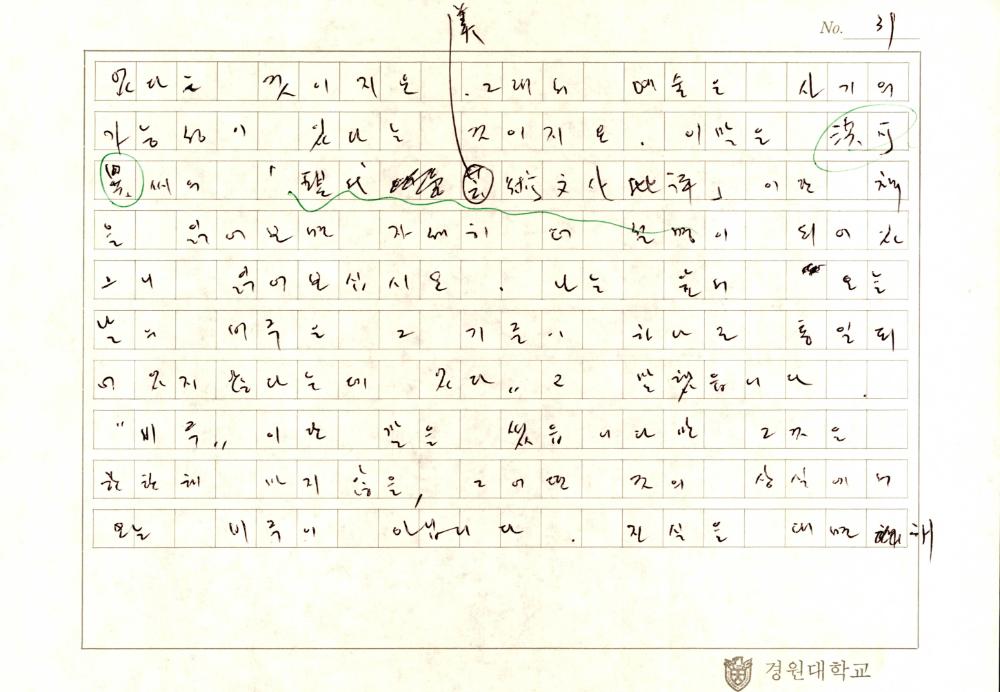 美
No. 31
있다는 것이지요. 그래서 예술은 사기의
가능성이 있다는 것이지요. 이 말은
씨의 「現代 藝術文化 」이란 책
을 읽어보면 자세히 더 설명이 되어있
으니 읽어보십시오. 나는 오늘
날의 비극은 그 기준이 하나로 통일되
어 있지 않다는데 있다„ 고 말했읍니다.
“비극„ 이란 말을 썼읍니다만 그것은
하지 않을, 그 어떤 것의 상식에서
오늘 비극이 아닙니다. 진실을 대면해
경원대학교